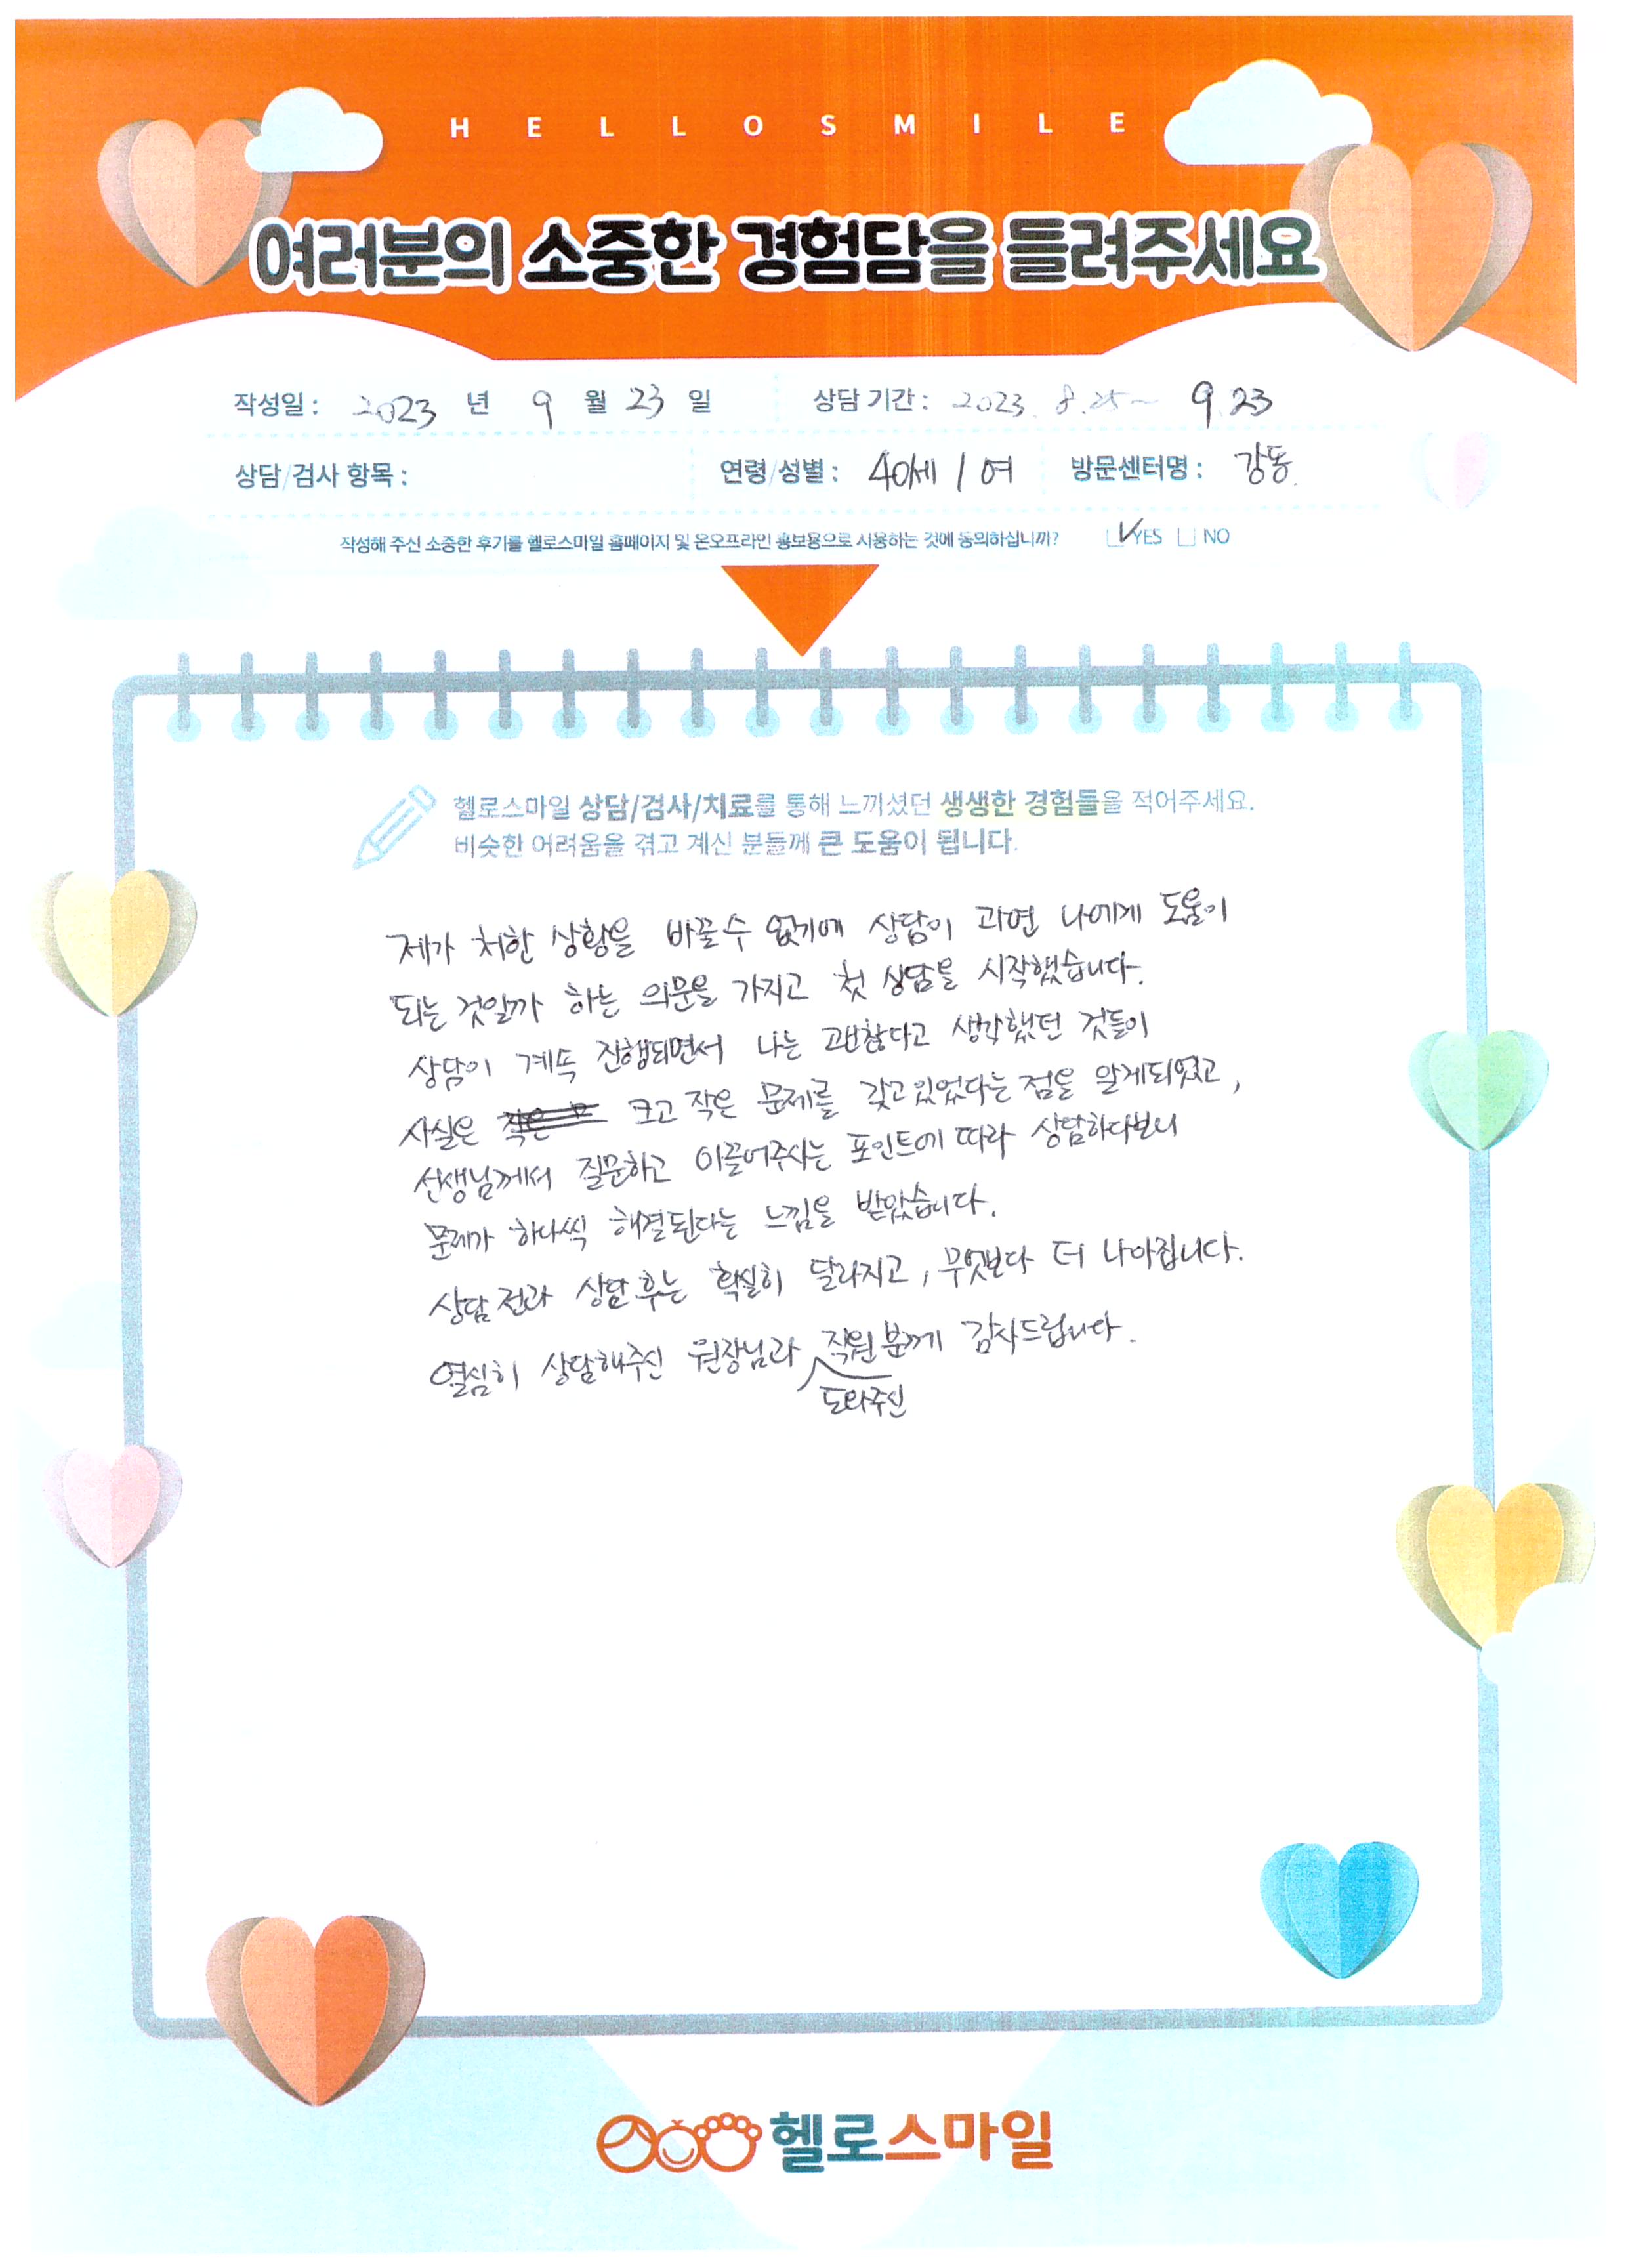 HELLOSMILE
여러분의 소중한 경험담을 들려주세요
작성일 : 2023 년 9 월 23 일 상담 기간 : 2023. 8. 25 ~ 9. 23
상담/검사 항목 : 연령/성별 : 40세 / 여 방문센터명 : 강동.
작성해 주신 소중한 후기를 헬로스마일 홈페이지 및 온오프라인 홍보용으로 사용하는 것에 동의하십니까? YES NO
헬로스마일 상담/검사/치료를 통해 느끼셨던 생생한 경험들을 적어주세요.
비슷한 어려움을 겪고 계신 분들께 큰 도움이 됩니다.
제가 처한 상황을 바꿀수 없기에 상담이 과연 나에게 도움이
되는 것일까 하는 의문을 가지고 첫 상담을 시작했습니다.
상담이 계속 진행되면서 나는 괜찮다고 생각했던 것들이
사실은 크고 작은 문제를 갖고있었다는 점을 알게되었고,
선생님께서 질문하고 이끌어주시는 포인트에 따라 상담하다보니
문제가 하나씩 해결된다는 느낌을 받았습니다.
상담 전과 상담 후는 확실히 달라지고, 무엇보다 더 나아집니다.
열심히 상담해주신 원장님과 도와주신 직원분께 감사드립니다.
헬로스마일